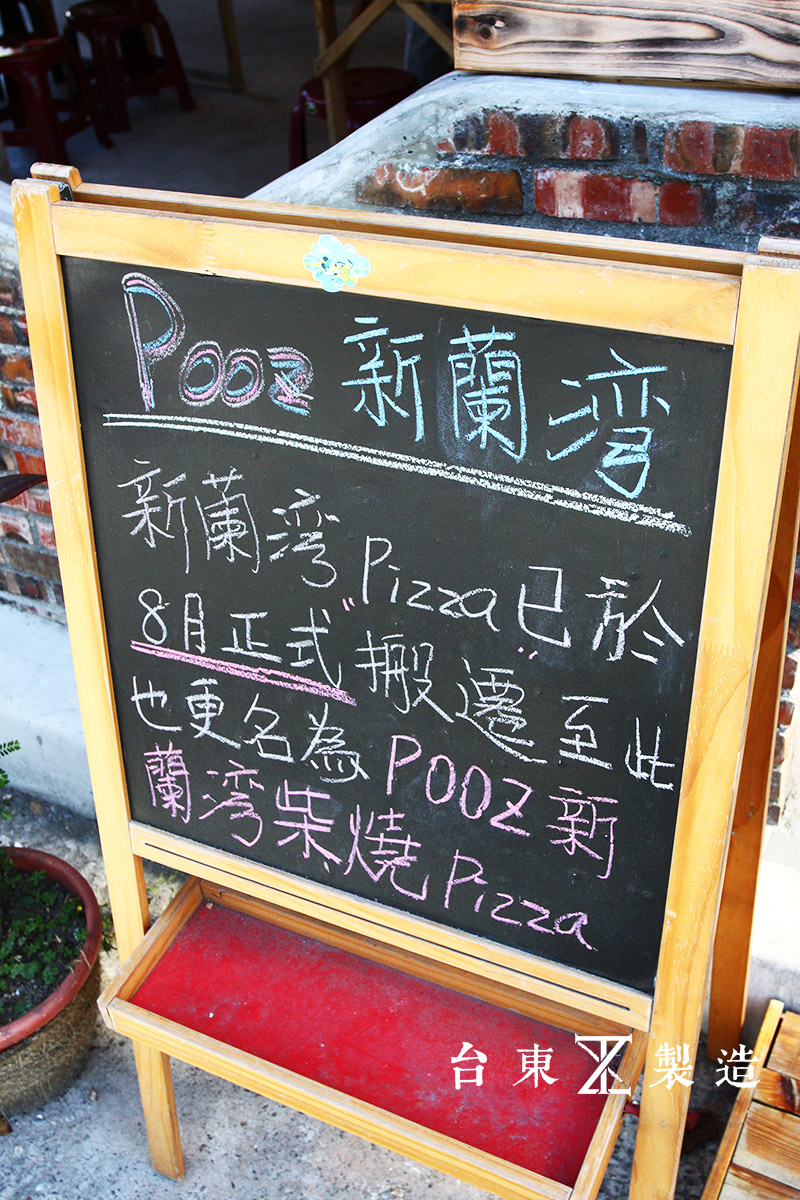 Pooz 新蘭湾
新蘭湾 Pizza 已於
"8月正式"搬遷至此
也更名為 POOZ 新
蘭湾柴燒 Pizza
台東製造